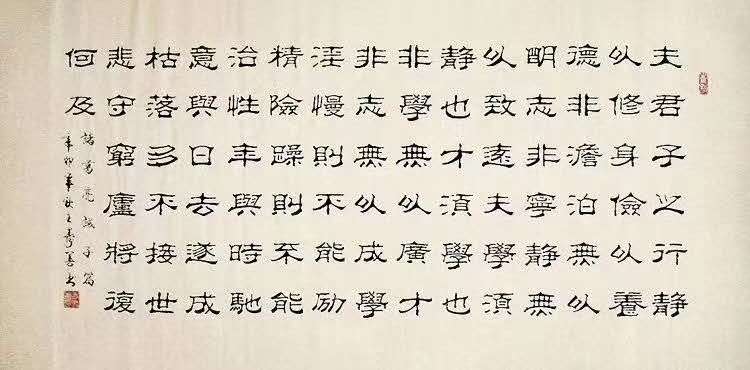 夫君子之行静
以修身儉以養
德非澹泊無以
明志非寧静無
以致遠夫學須
静也才須學也
非學無以廣才
非志無以成學
淫慢則不能励
精險躁則不能
治性年與時馳
意與日去遂成
枯落多不接世
悲守窮廬將復
何及
諸葛亮誡子篇
辛卯秋書